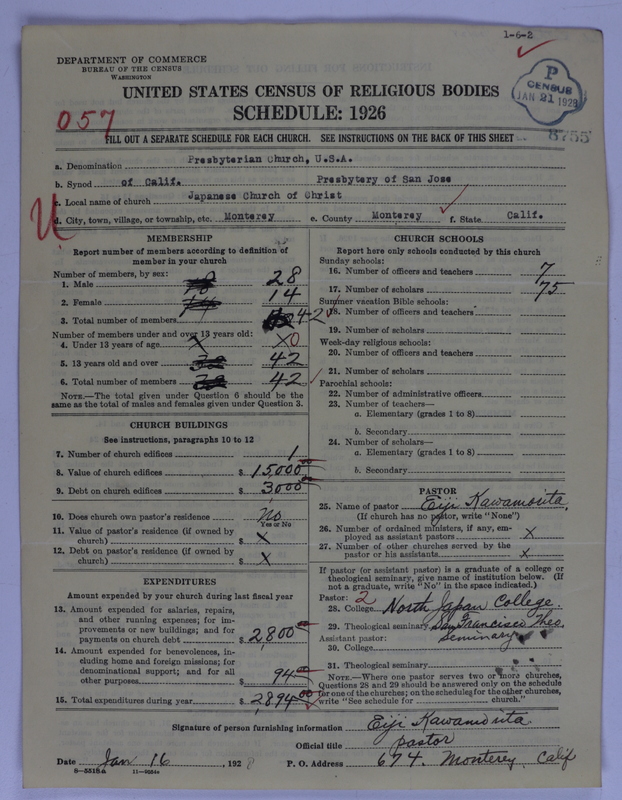 1-6-2
DEPARTMENT OF COMMERCE
BUREAU OF THE CENSUS
WASHINGTON
P
CENSUS
JAN 21 1928
UNITED STATES CENSUS OF RELIGIOUS BODIES
SCHEDULE: 1926
057
8755
FILL OUT A SEPARATE SCHEDULE FOR EACH CHURCH. SEE INSTRUCTIONS ON THE BACK OF THIS SHEET
a. Denomination Presbyterian Church, U.S.A.
b. Synod of Calif. Presbytery of San Jose
c. Local name of church Japanese Church of Christ
d. City, town, village, or township, etc. Monterey e. County Monterey f. State Calif.
MEMBERSHIP
Report number of members according to definition of
member in your church
Number of members, by sex:
1. Male 28
2. Female 14
3. Total number of members 42
Number of members under and over 13 years old:
4. Under 13 years of age x x0
5. 13 years old and over 42
6. Total number of members 42
NOTE.—The total given under Question 6 should be the
same as the total of males and females given under Question 3.
CHURCH BUILDINGS
See instructions, paragraphs 10 to 12
7. Number of church edifices 1
8. Value of church edifices $ 15,000.00
9. Debt on church edifices $ 3,000.00
10. Does church own pastor's residence No
Yes or No
11. Value of pastor's residence (if owned by
church) $ x
12. Debt on pastor's residence (if owned by
church) $ x
EXPENDITURES
Amount expended by your church during last fiscal year
13. Amount expended for salaries, repairs,
and other running expenses; for im-
provements or new buildings; and for
payments on church debt $ 2,800
14. Amount expended for benevolences, in-
cluding home and foreign missions; for
denominational support; and for all
other purposes $ 94
15. Total expenditures during year $ 2,894.00
CHURCH SCHOOLS
Report here only schools conducted by this church
Sunday schools:
16. Number of officers and teachers 7
17. Number of scholars 75
Summer vacation Bible schools:
18. Number of officers and teachers
19. Number of scholars
Week-day religious schools:
20. Number of officers and teachers
21. Number of scholars
Parochial schools:
22. Number of administrative officers
23. Number of teachers—
a. Elementary (grades 1 to 8)
b. Secondary
24. Number of scholars—
a. Elementary (grades 1 to 8)
b. Secondary
PASTOR
25. Name of pastor Eiji Kawamorita
(If church has no pastor, write "None")
26. Number of ordained ministers, if any, em-
ployed as assistant pastors x
27. Number of other churches served by the
pastor or his assistants x
If pastor (or assistant pastor) is a graduate of a college or
theological seminary, give name of institution below. (If
not a graduate, write "No" in the space indicated.)
Pastor: 2
28. College North Japan College.
29. Theological seminary San Francisco Theo.
Assistant pastor: Seminary
30. College
31. Theological seminary
NOTE.—Where one pastor serves two or more churches,
Questions 28 and 29 should be answered only on the schedule
for one of the churches; on the schedules for the other churches,
write "See schedule for church."
Signature of person furnishing information Eiji Kawamorita
Official title pastor
Date Jan 16, 1928 P. O. Address 674. Monterey, Calif
8-5518a 11-9954